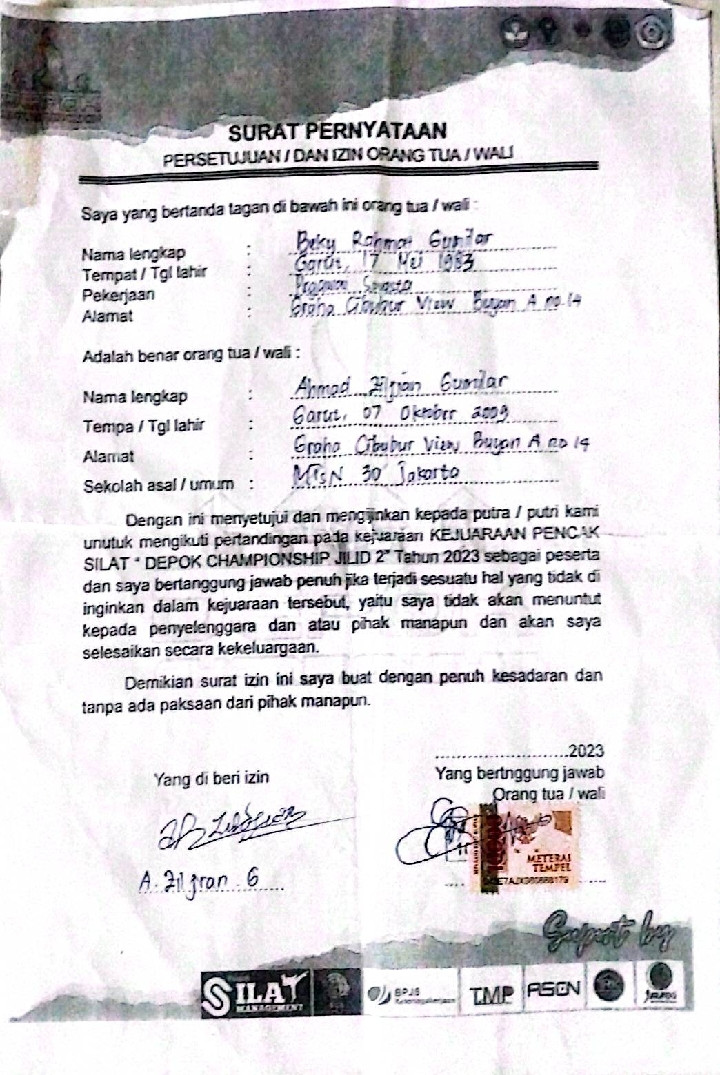 SURAT PERNYATAAN
PERSETUJUAN / DAN IZIN ORANG TUA / WALI
Saya yang bertanda tagan di bawah ini orang tua / wali :
Nama lengkap : Beky Rahmat Gumilar
Tempat / Tgl lahir : Garut, 17 Mei 1983
Pekerjaan : Pegawai Swasta
Alamat : Graha Cibubur View Buyan A no.14
Adalah benar orang tua / wali :
Nama lengkap : Ahmad Ziljian Gumilar
Tempa / Tgl lahir : Garut, 07 Oktober 2009
Alamat : Graha Cibubur View Buyan A no 14
Sekolah asal / umum : MTsN 30 Jakarta
Dengan ini menyetujui dan mengijinkan kepada putra / putri kami
unutuk mengikuti pertandingan pada kejuaraan KEJUARAAN PENCAK
SILAT “ DEPOK CHAMPIONSHIP JILID 2” Tahun 2023 sebagai peserta
dan saya bertanggung jawab penuh jika terjadi sesuatu hal yang tidak di
inginkan dalam kejuaraan tersebut, yaitu saya tidak akan menuntut
kepada penyelenggara dan atau pihak manapun dan akan saya
selesaikan secara kekeluargaan.
Demikian surat izin ini saya buat dengan penuh kesadaran dan
tanpa ada paksaan dari pihak manapun.
......................2023
Yang di beri izin
Yang bertnggung jawab
Orang tua / wali
METERAI
TEMPEL
A. Ziljian. G
Suport by
SILAT
MANAGEMENT
BPJS
Ketenagakerjaan
TMP